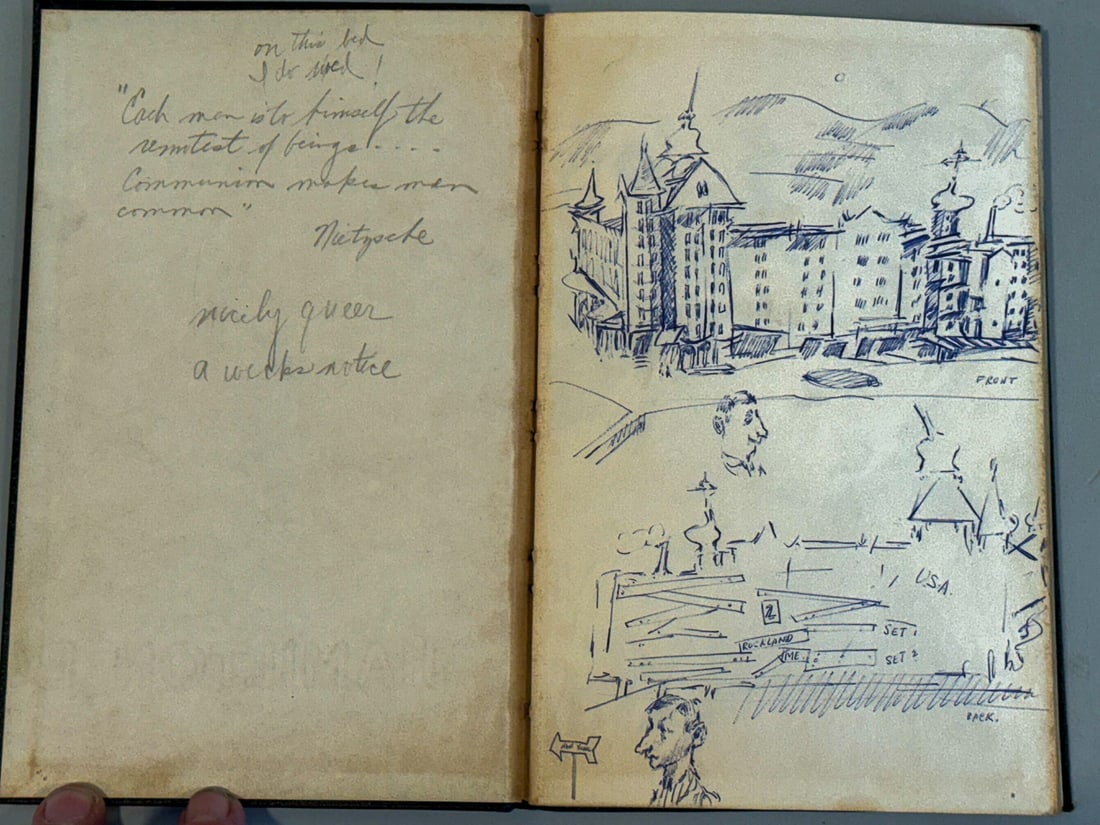 on this bed
I do
"Each man is to himself the
remotest of beings....
Communion makes man
common"
Nietzsche
nicely queer
a weeks notice
FRONT
USA.
2
ROCKLAND
SET 1
ME.
SET 2
BACK.